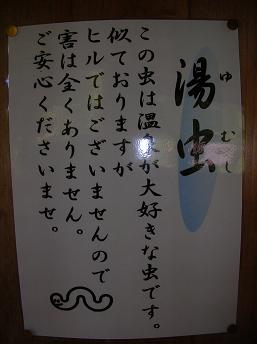 湯虫
ゆむし
この虫は温泉が大好きな虫です。
似ておりますが
ヒルではございませんので
害は全くありません。
ご安心くださいませ。